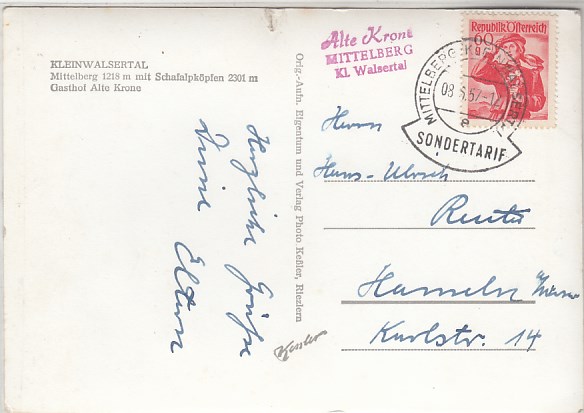 KLEINWALSERTAL
Mittelberg 1218 m mit Schafalpköpfen 2301 m
Gasthof Alte Krone
Herzliche Grüße
Deine
Eltern
Orig.-Aufn. Eigentum und Verlag Photo Keßler, Riezlern
Kessler
Alte Krone
MITTELBERG
Kl. Walsertal
Republik Österreich
MITTELBERG-KLEINWALSERTAL
08. 6. 67-12
e
SONDERTARIF
Herrn
Hans-Ulrich
Reuter
Hameln /Weser
Karlstr. 14